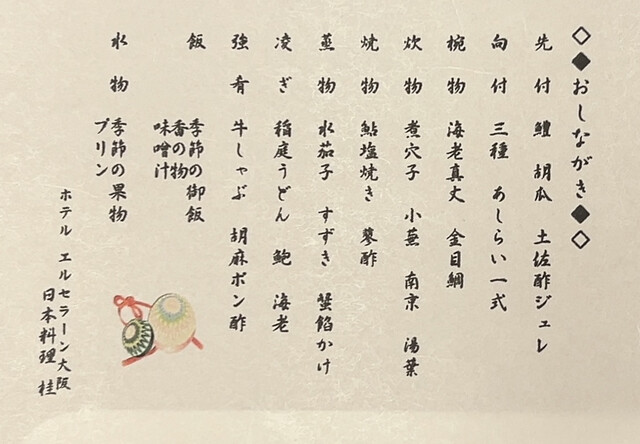 ◇◆おしながき◆◇
先付 鱧 胡瓜 土佐酢ジュレ
向付 三種 あしらい一式
椀物 海老真丈 金目鯛
炊物 煮穴子 小蕪 南京 湯葉
焼物 鮎塩焼き 蓼酢
蒸物 水茄子 すずき 蟹餡かけ
凌ぎ 稲庭うどん 鮑 海老
強肴 牛しゃぶ 胡麻ポン酢
飯 季節の御飯
香の物
味噌汁
水物 季節の果物
プリン
ホテル エルセラーン大阪
日本料理 桂